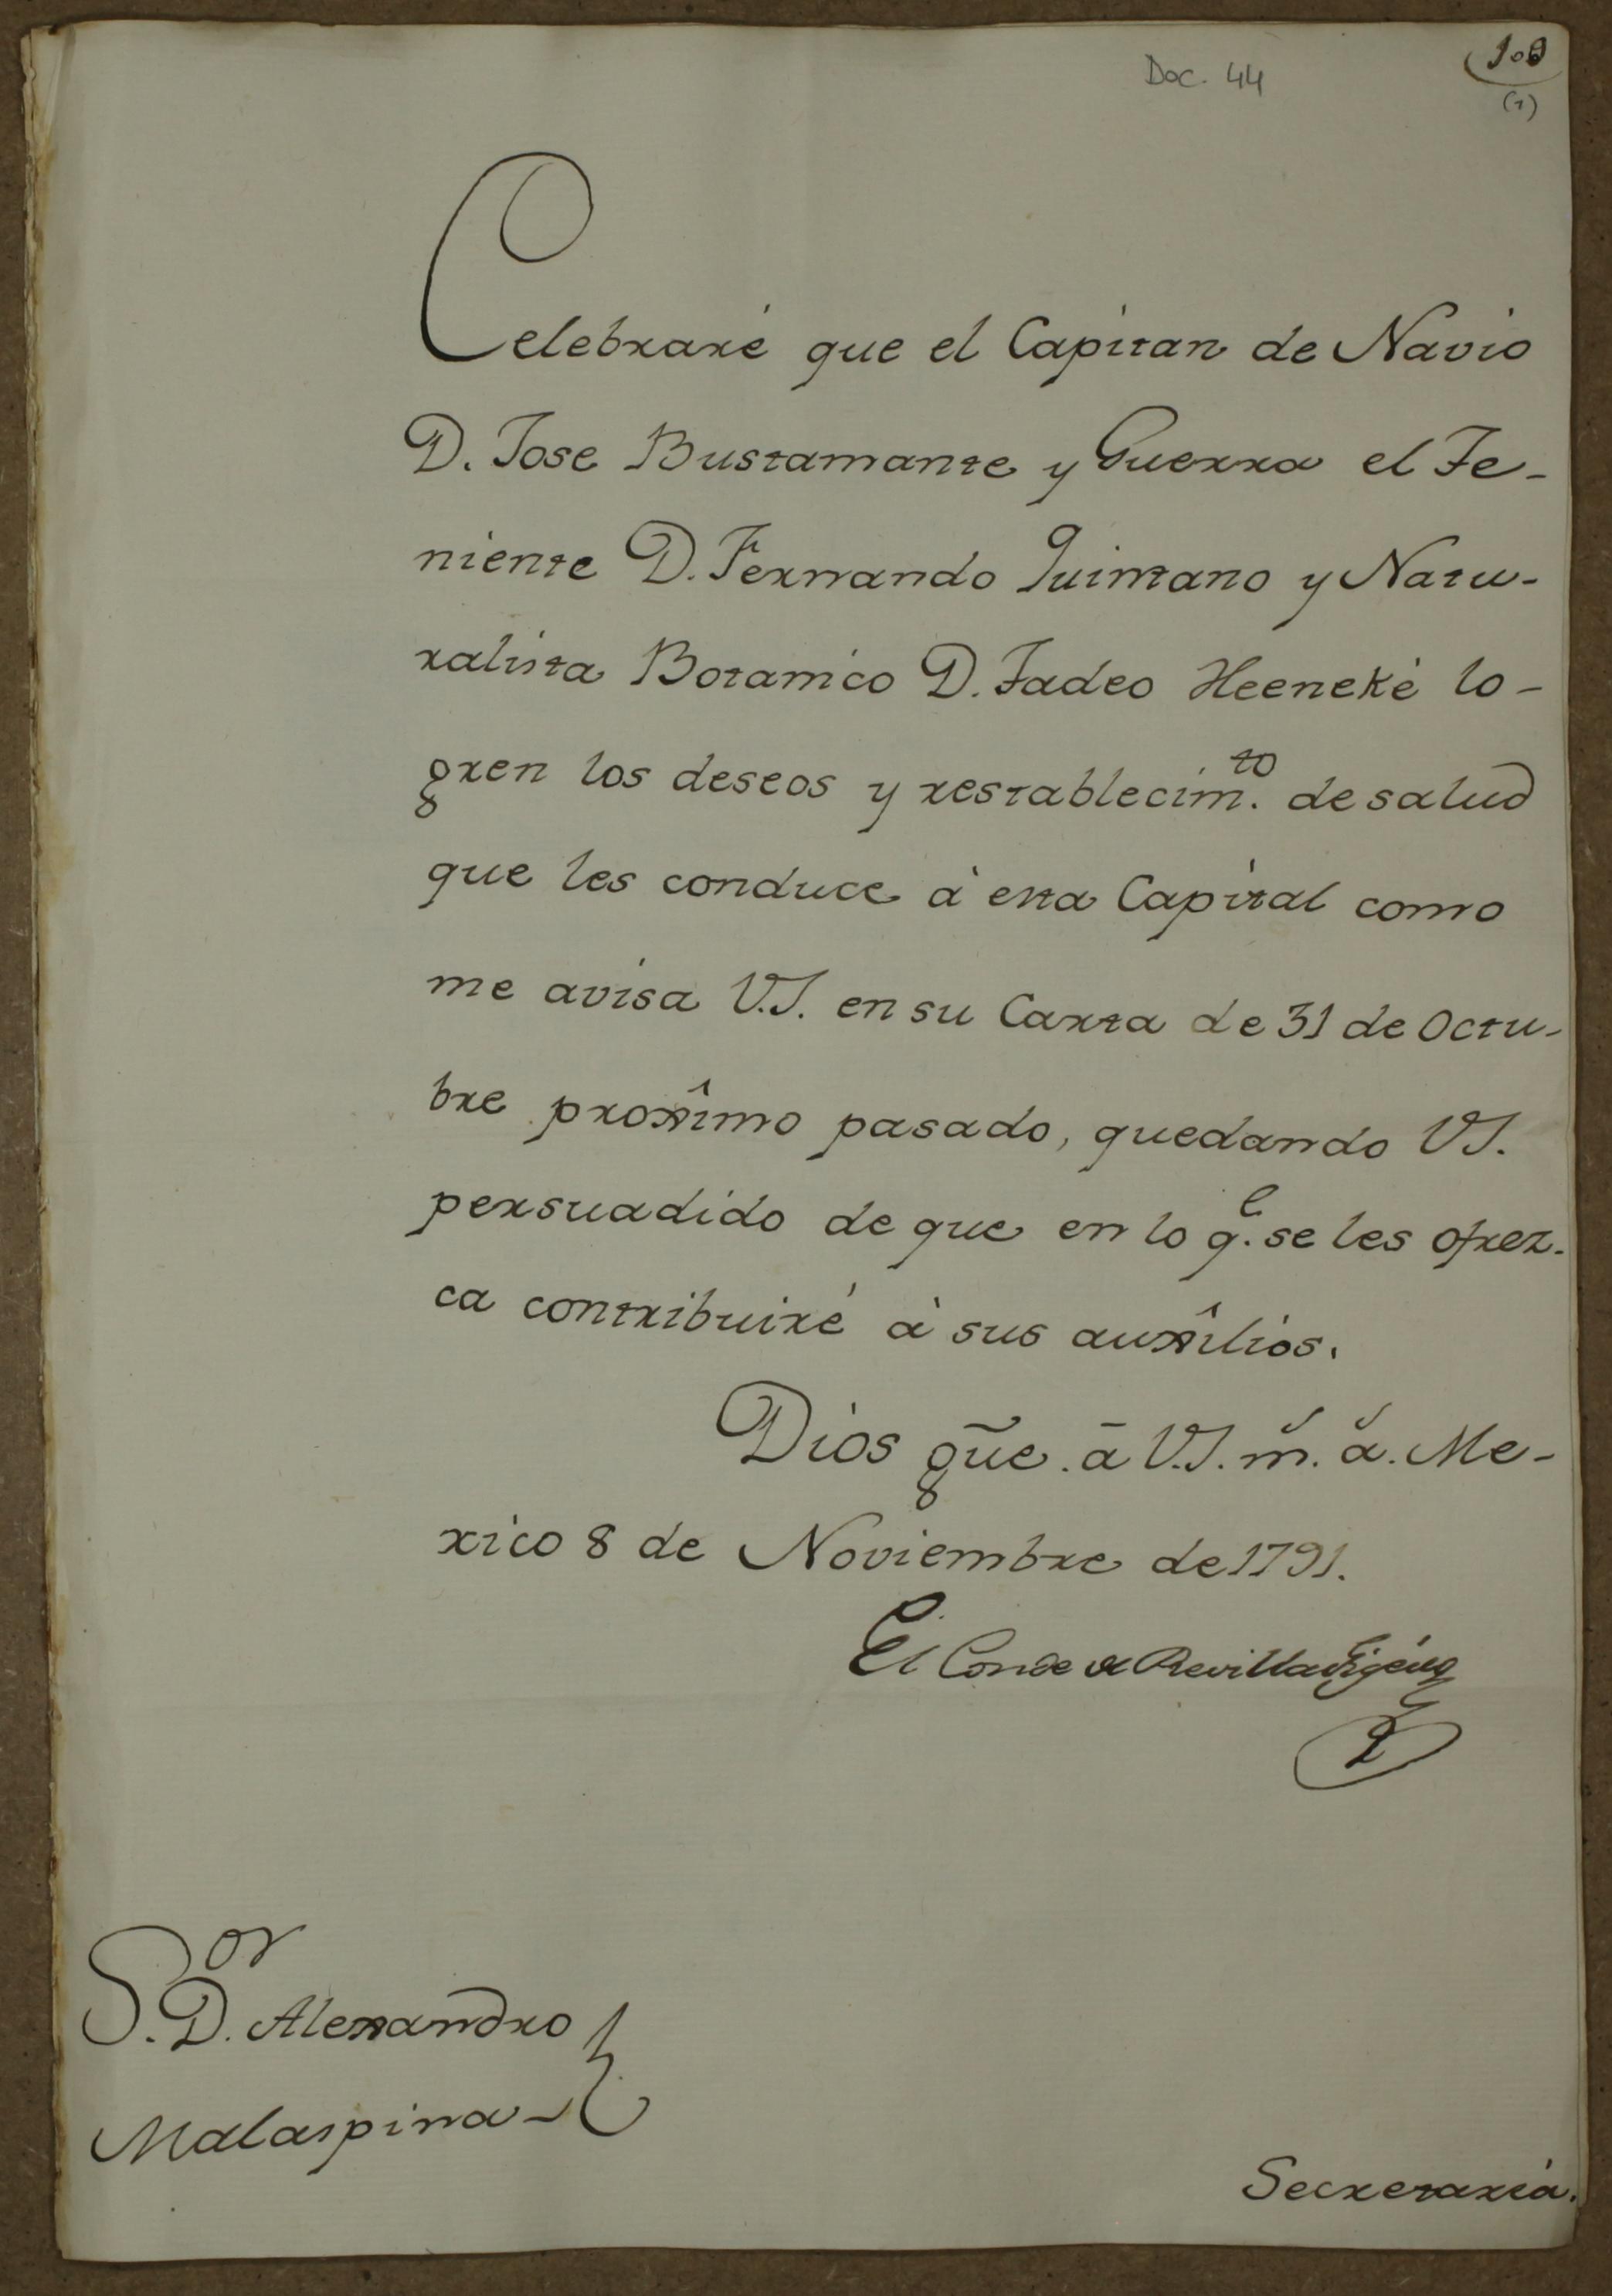 Doc. 44
(1)
Celebraré que el Capitan de Navio
D. Jose Bustamante y Guerra el Te-
niente D. Fernando Quintano y Natu-
ralista Botanico D. Tadeo Heeneké lo-
gren los deseos y restablecim.to de salud
que les conduce à esta Capital como
me avisa V.S. en su Carta de 31 de Octu-
bre proxîmo pasado, quedando VS.
persuadido de que en lo q.e se les ofrez-
ca contribuiré à sus auxîlios.
Dios gūe. ā V.S. m.s a.s Me-
xico 8 de Noviembre de 1791.
El Conde de Revilla Gigedo
S.or D. Alexandro
Malaspina
Secretaría.